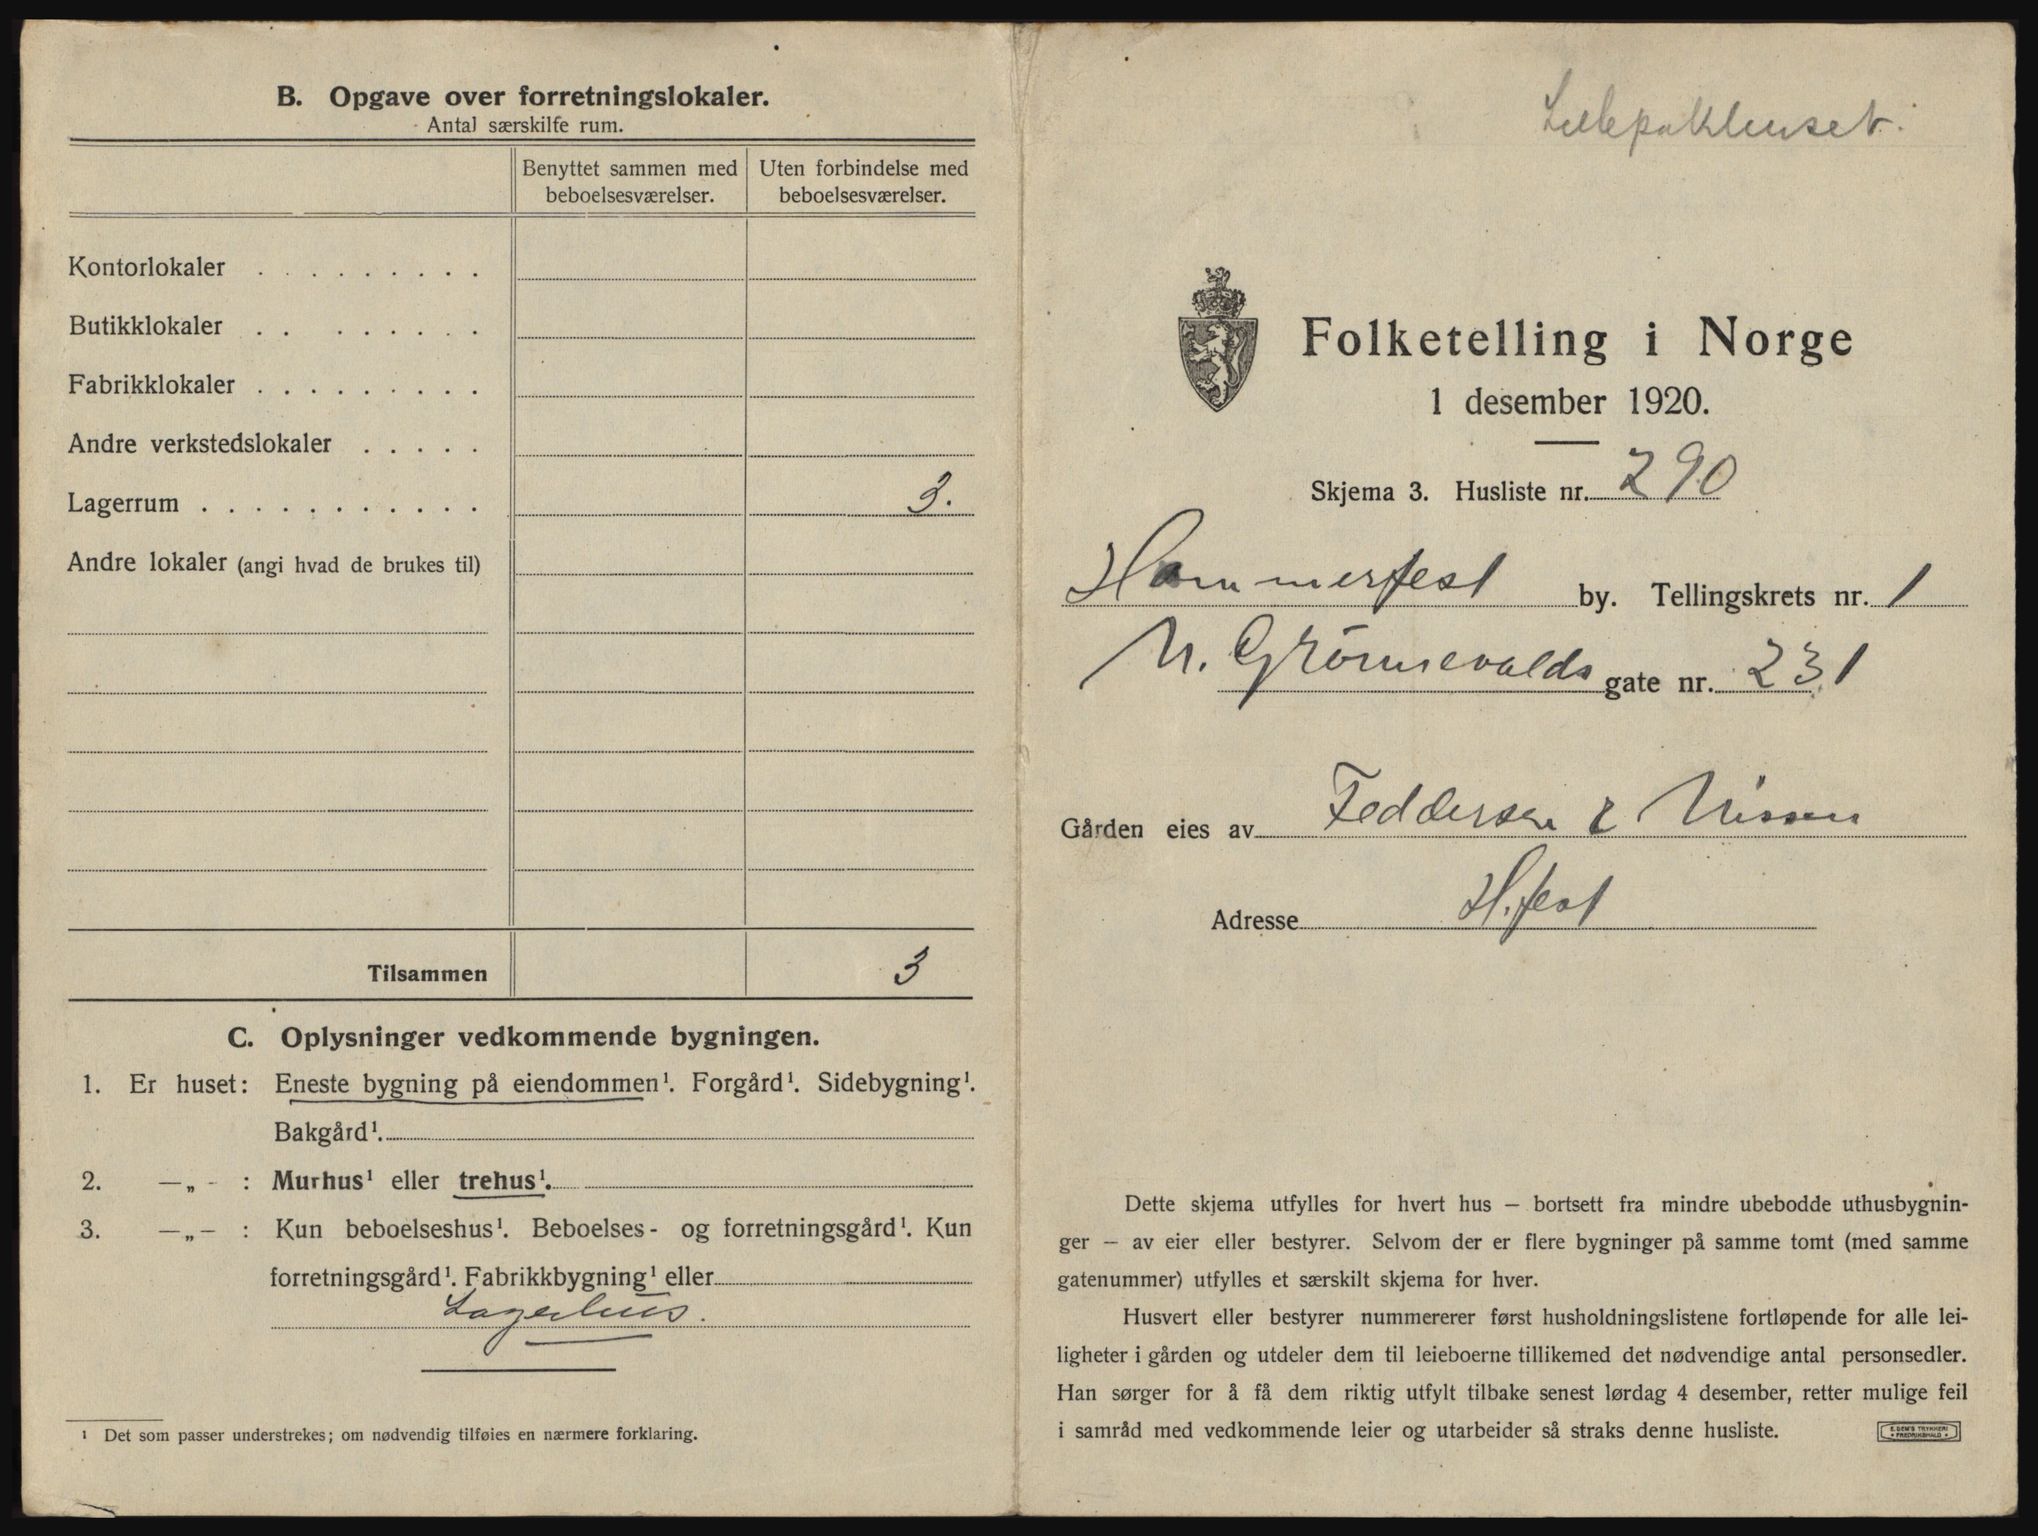 B. Opgave over forretningslokaler.
Antal særskilte rum.
Benyttet sammen med beboelsesværelser.
Uten forbindelse med beboelsesværelser.
Kontorlokaler
Butikklokaler
Fabrikklokaler
Andre verkstedslokaler
Lagerrum 3.
Andre lokaler (angi hvad de brukes til)
Tilsammen 3
C. Oplysninger vedkommende bygningen.
1. Er huset: Eneste bygning på eiendommen¹. Forgård¹. Sidebygning¹.
Bakgård¹.
2. —„- : Murhus¹ eller trehus¹.
3. —„— : Kun beboelseshus¹. Beboelses- og forretningsgård¹. Kun
forretningsgård¹. Fabrikkbygning¹ eller
Lagerhus.
¹ Det som passer understrekes; om nødvendig tilføies en nærmere forklaring.
Lillepakhuset.
Folketelling i Norge
1 desember 1920.
Skjema 3. Husliste nr. 290
Hammerfest by. Tellingskrets nr. 1
N. Grønnevolds gate nr. 231
Gården eies av Feddersen & Nissen
Adresse H.fest
Dette skjema utfylles for hvert hus – bortsett fra mindre ubebodde uthusbygnin-
ger – av eier eller bestyrer. Selvom der er flere bygninger på samme tomt (med samme
gatenummer) utfylles et særskilt skjema for hver.
Husvert eller bestyrer nummererer først husholdningslistene fortløpende for alle lei-
ligheter i gården og utdeler dem til leieboerne tillikemed det nødvendige antal personsedler.
Han sørger for å få dem riktig utfylt tilbake senest lørdag 4 desember, retter mulige feil
i samråd med vedkommende leier og utarbeider så straks denne husliste.
E. DEM'S TRYKKERI
FREDRIKSHALD